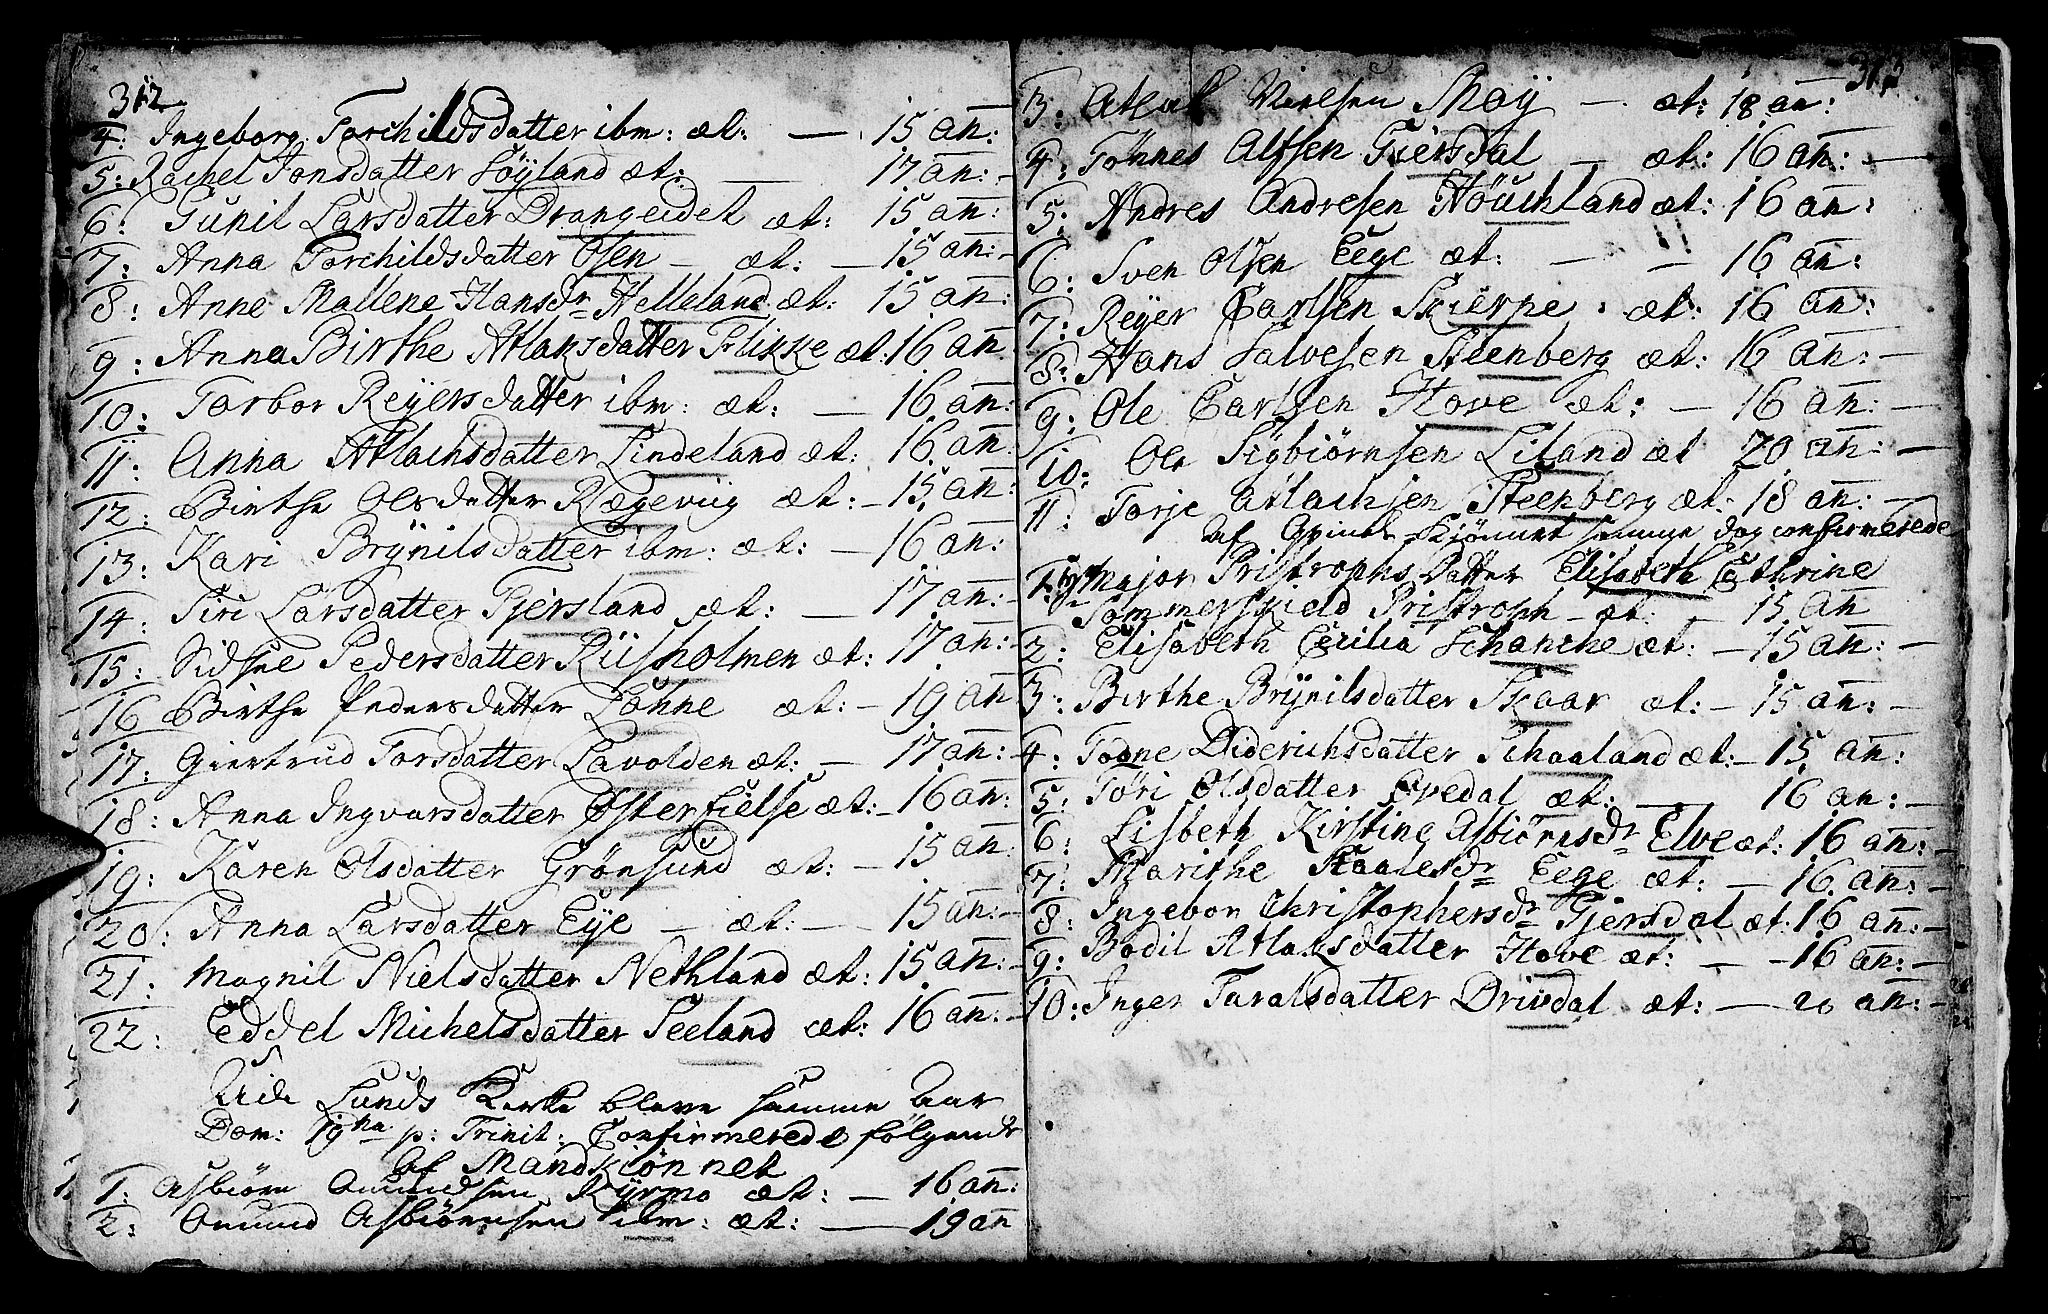 312
4: Ingeborg Torchildsdatter ibm: æt: — 15 añ:
5: Rachel Jonsdatter Søyland æt: — 17 añ: -
6: Gunil Larsdatter Drangeidet æt: 15 añ:
7: Anna Torchildsdatter Olsen - æt: — 15 añ: -
8: Anne Mallene Hansdr Helleland æt: 15 añ:
9: Anna Birthe Atlaksdatter Flikke æt: 16 añ
10: Torbor Reyersdatter ibm: æt: — 16 añ:
11: Anna Atlachsdatter Lindeland æt: 16 añ:
12: Birthe Olsdatter Rægeviig æt: - 15 añ:
13: Kari Brÿnilsdatter ibm: æt: — 16 añ:
14: Siri Larsdatter Tjersland æt: — 17 añ: -
15: Sidsel Pedersdatter Rüsholmen æt: 17 añ: -
16 Birthe Pedersdatter Løhne æt: - 19 añ
17: Giertrud Torsdatter Lavolden æt: — 17 añ:
18: Anna Ingvarsdatter Østerfielse æt: - 16 añ:
19: Karen Olsdatter Grønsund æt: — 15 añ:
20: Anna Larsdatter Eÿe — æt: — 15 añ: -
21: Magnil Nielsdatter Nethland æt: 15 añ: -
22: Eddel Michelsdatter Seeland æt: 16 añ: -
Udi Lunds Kirke bleve samme Aar
Dom: 19na p: Trinit: Confirmerede følgende
af Mandkiønnet
1: Asbiørn Omundsen Kÿrmo æt: — 16 añ:
2: Omund Asbiørnsen ibm: æt: — 19 añ
313
3: Atlak Nielsen Moÿ — æt: 18 añ:
4: Tønnes Alfsen Giersdal — æt: 16 añ: —
5: Andres Andresen Høuchland æt: 16 añ:
6: Sven Olsen Eege æt: — — 16 añ:
7: Reÿer Carlsen Skierpe . æt: 16 añ:
8: Hans Salvesen Steenberg æt: 16 añ: —
9: Ole Carlsen Hove æt: — 16 añ: —
10: Ole Sigbiørnsen Liland æt 20 añ: —
11: Torje Atlachsen Steenberg æt: 18 añ: —
af Qvinde Kiønnet samme dag confirmerede
1: Major Pristrophs Datter Elisabeth Cathrine
Sommerskield Pristroph - æt: — 15 añ
2: Elisabeth Cecilia Schanche æt: — 15 añ: —
3: Birthe Brÿnilsdatter Skaar æt: — 15 añ: —
4: Tonne Diderichsdatter Schaaland æt: - 15 añ:
5: Tøri Olsdatter Qvedal æt: — 16 añ: —
6: Lisbeth Kirstine Asbiørnsdr Elve æt: 16 añ: -
7: Marithe Staalesdr Eege æt: — 16 añ: -
8: Ingebor Christophersdr Gjersdal æt: 16 añ: -
9: Bodil Atlaksdatter Hove æt: — - 16 añ: —
10: Inger Taralsdatter Drivdal æt: — 20 añ: -